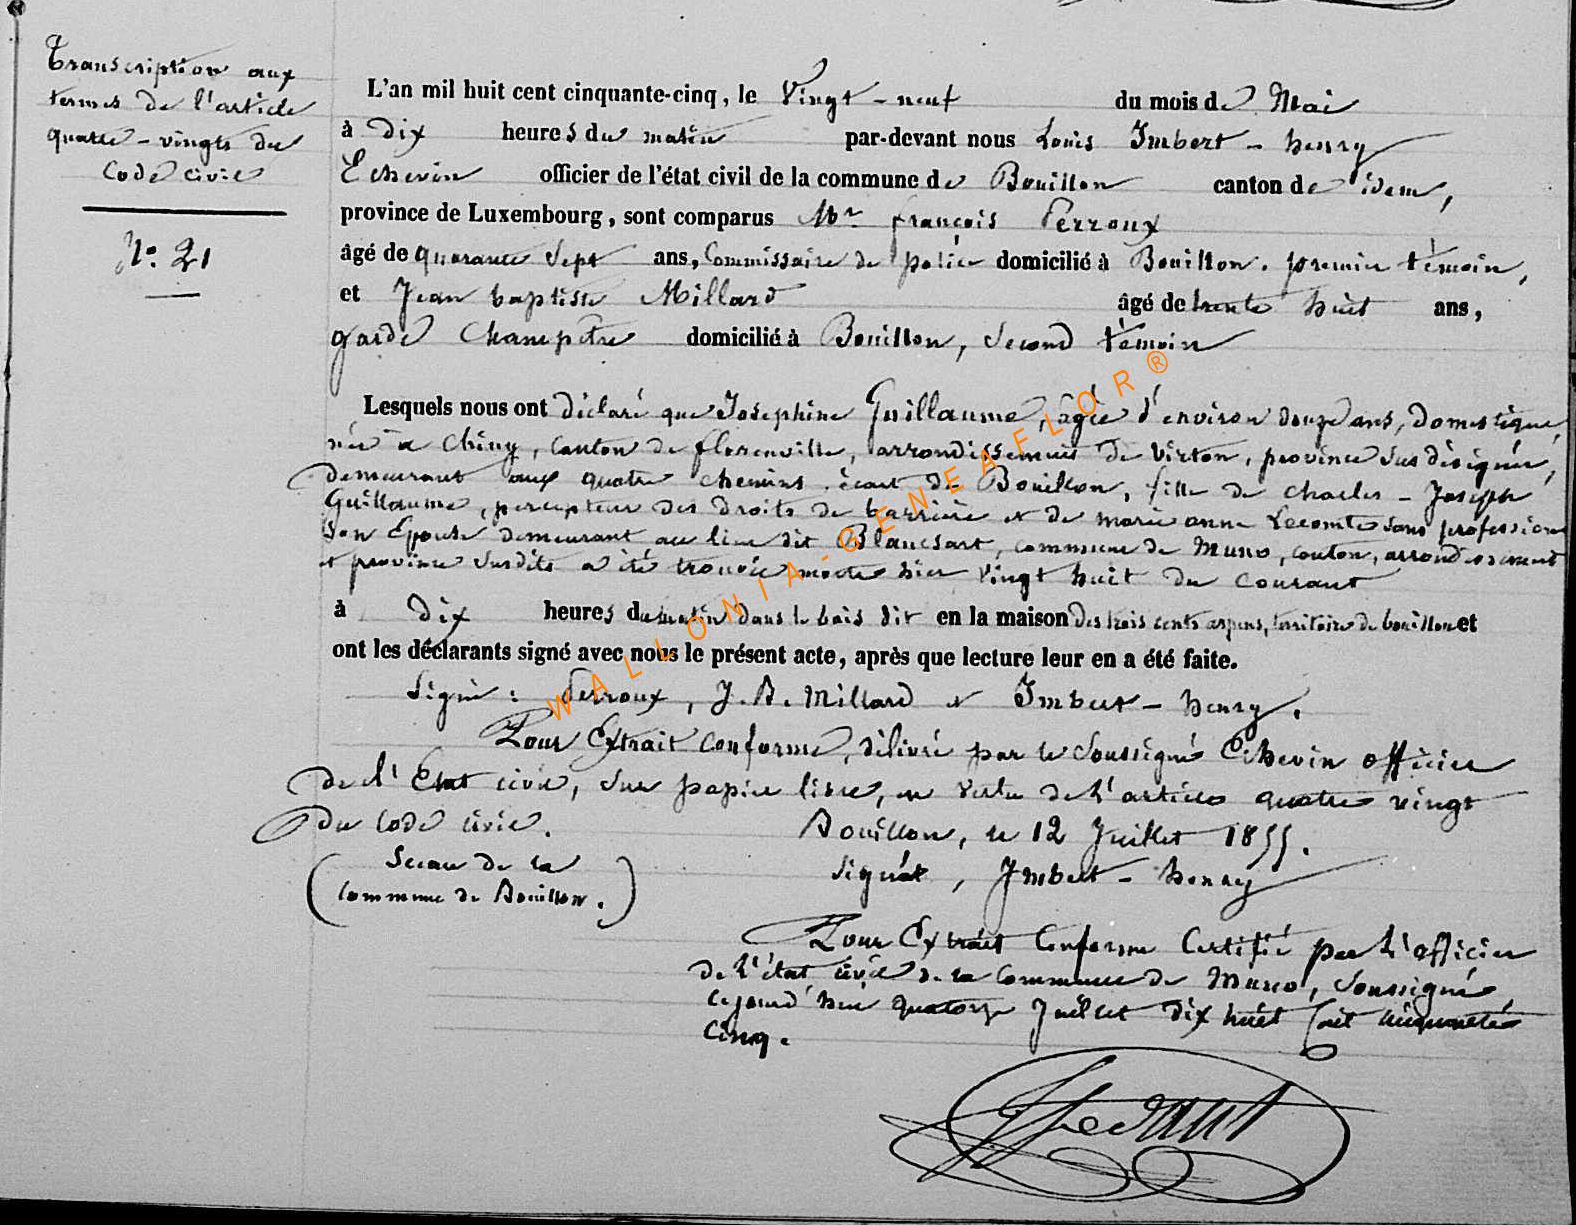 Transcription aux
termes de l'article
quatre-vingts du
Code civil
N° 21
L'an mil huit cent cinquante-cinq, le Vingt-neuf du mois de Mai
à dix heures du matin par-devant nous Louis Imbert-henry
Echevin officier de l'état civil de la commune de Bouillon canton de idem,
province de Luxembourg, sont comparus Mr. françois Perroux
âgé de quarante sept ans, Commissaire de police domicilié à Bouillon. premier témoin,
et Jean baptiste Millard âgé de trente huit ans,
garde Champêtre domicilié à Bouillon, second témoin
Lesquels nous ont déclaré que Josephine Guillaume, âgée d'environ douze ans, domestique,
née à Chiny, canton de florenville, arrondissement de Virton, province susdésignée,
demeurant aux quatre chemins, écart de Bouillon, fille de Charles-Joseph
Guillaume, percepteur des droits de barrière et de marie anne Lecomte sans profession
son Epouse demeurant au lieu dit Blancsart, commune de Muno, canton, arrondissement
et province susdits a été trouvée morte hier vingt huit du courant
à dix heures du matin dans le bois dit en la maison des trois cents arpens, territoire de bouillon et
ont les déclarants signé avec nous le présent acte, après que lecture leur en a été faite.
Signé: Perroux, J. B. Millard et Imbert-henry.
Pour Extrait conforme, délivré par le soussigné Echevin officier
de l'Etat civil, sur papier libre, en vertu de l'article quatre vingt
du Code civil. Bouillon, le 12 Juillet 1855.
(Sceau de la
Commune de Bouillon.) signé, Imbert-henry
Pour Extrait Conforme Certifié par l'officier
de l'état civil de la Commune de Muno, soussigné
cejourd'hui quatorze Juillet dix huit cent cinquante
cinq.
WALLONIA-GENEAFLOR®